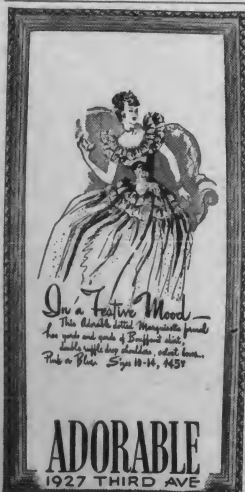 In a Festive Mood—
This Adorable dotted Marquisette formal
has yards and yards of Bouffant skirt,
double ruffle drop shoulders, velvet bows...
Pink or Blue. Sizes 10-14,
ADORABLE
1927 THIRD AVE